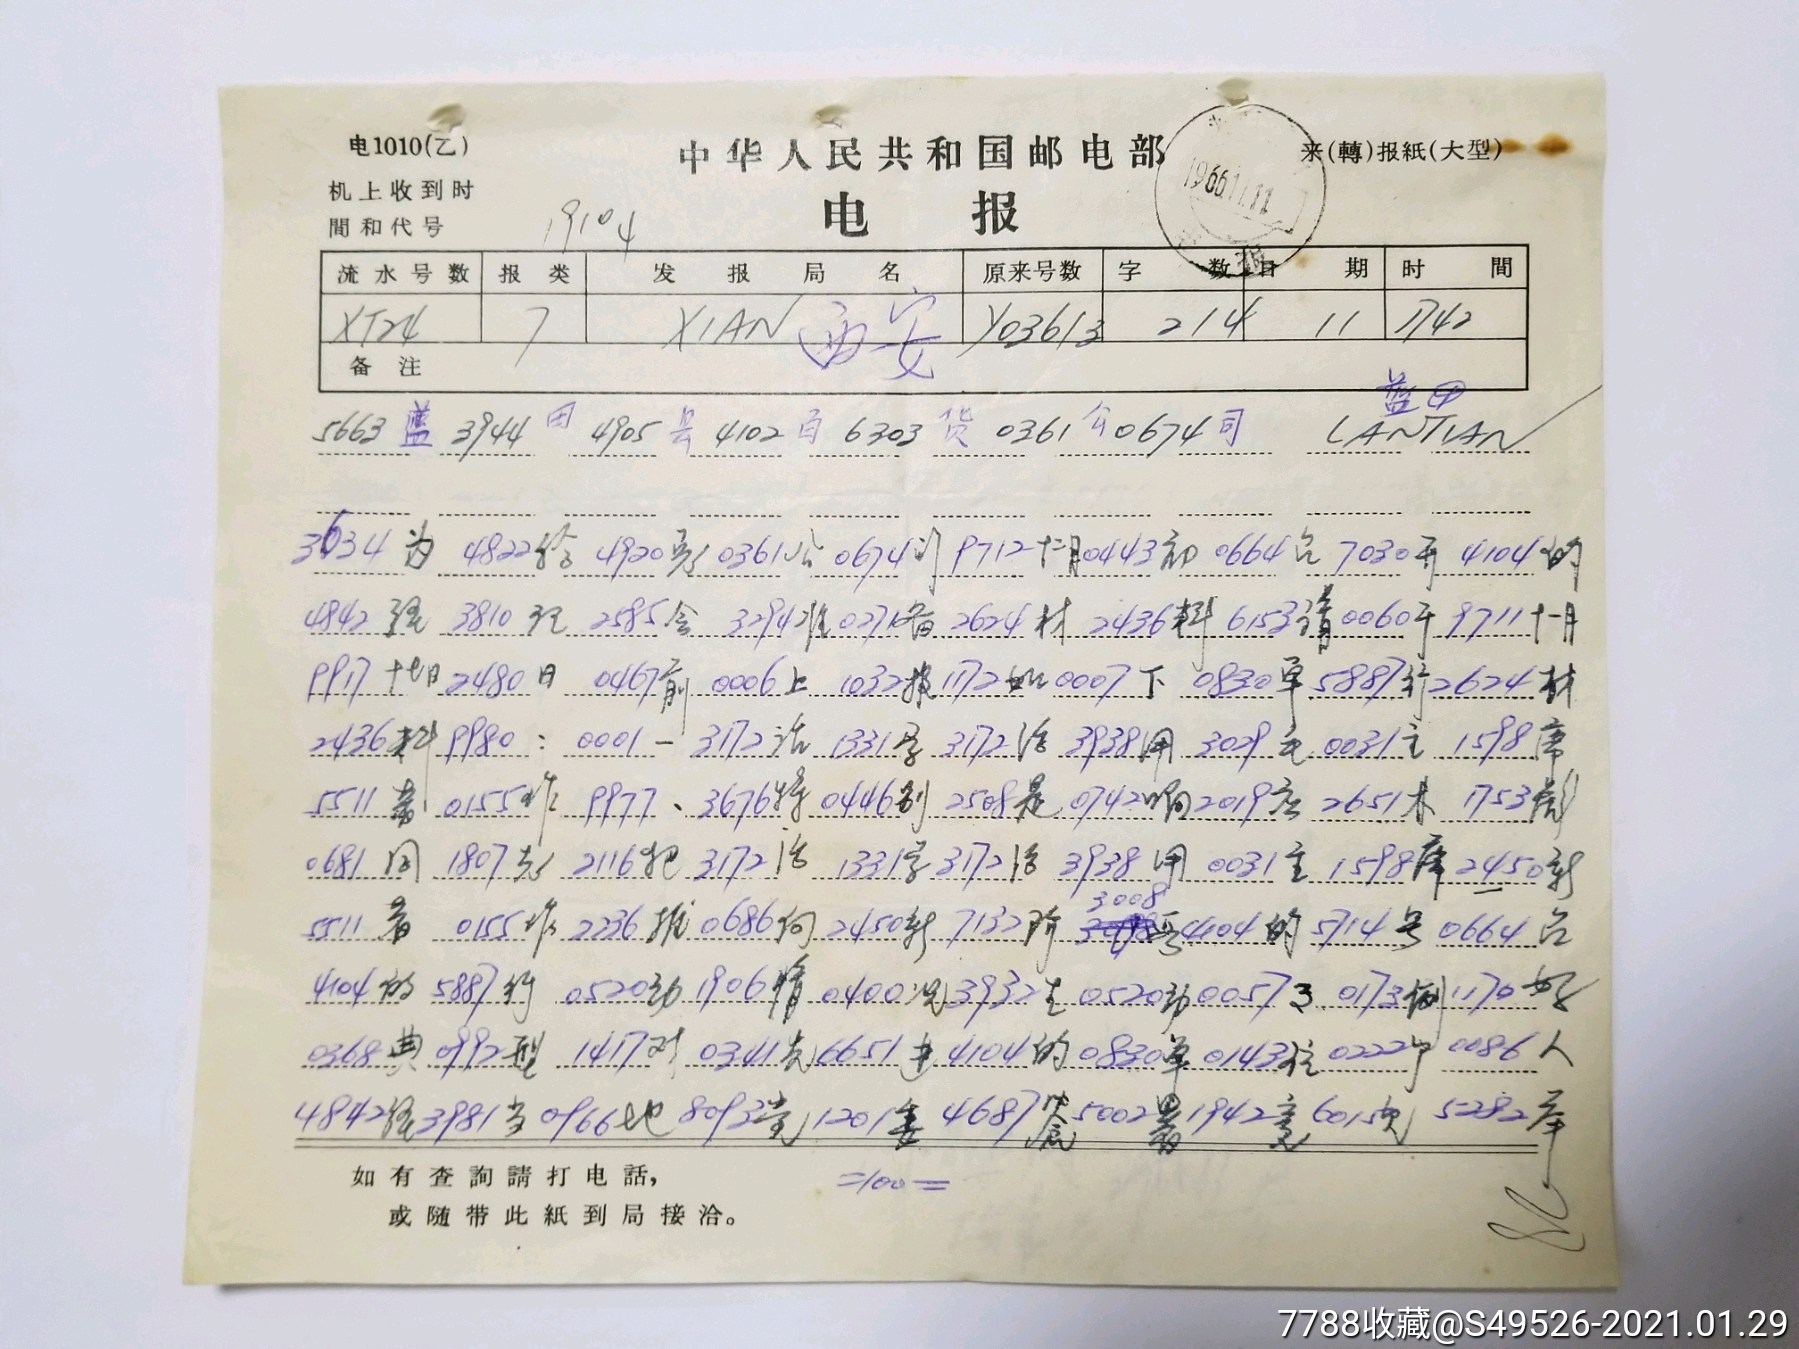 电1010(乙)
中华人民共和国邮电部
来(轉)报紙(大型)
机上收到时
間和代号
19104
电 报
1966.11.11
流水号数 报类 发报局名 原来号数 字数 日期 时間
XT24 7 XIAN 西安 Y03613 214 11 1742
备注
蓝田
5663 蓝 3944 田 4905 县 4102 百 6303 货 0361 公 0674 司 LANTIAN
3634 为 4822 给 4920 0361 公 0674 司 9712 十二月 0443 初 0664 召 7030 开 4104 的
4842 经 3810 理 2585 会 3294 准 0271 备 2624 材 2436 料 6153 请 0060 于 9711 十一月
9917 十七日 2480 日 0467 前 0006 上 1032 报 1172 如 0007 下 0830 单 5887 行 2624 材
2436 料 9980 : 0001 一 3172 活 1331 学 3172 活 3938 用 3029 毛 0031 主 1598 席
5511 著 0155 作 9977 、 3676 特 0446 别 2508 是 0742 响 2019 应 2651 林 1753 彪
0681 同 1807 志 2116 把 3172 活 1331 学 3172 活 3938 用 0031 主 1598 席 2450 新
3008
5511 著 0155 作 2236 推 0686 向 2450 新 7132 阶 段 4104 的 5714 号 0664 召
4104 的 5887 行 0520 动 1906 情 0400 况 3932 生 0520 动 0057 事 0173 例 1170 好
0368 典 0992 型 1417 对 0341 先 6651 进 4104 的 0830 单 0143 位 0222 个 0086 人
4842 经 3981 当 0966 地 8093 党 1201 委 4687 签 5002 署 1942 意 6015 见 5282 举
如有查詢請打电話,
或随带此紙到局接洽。
=100=
7788收藏@S49526-2021.01.29